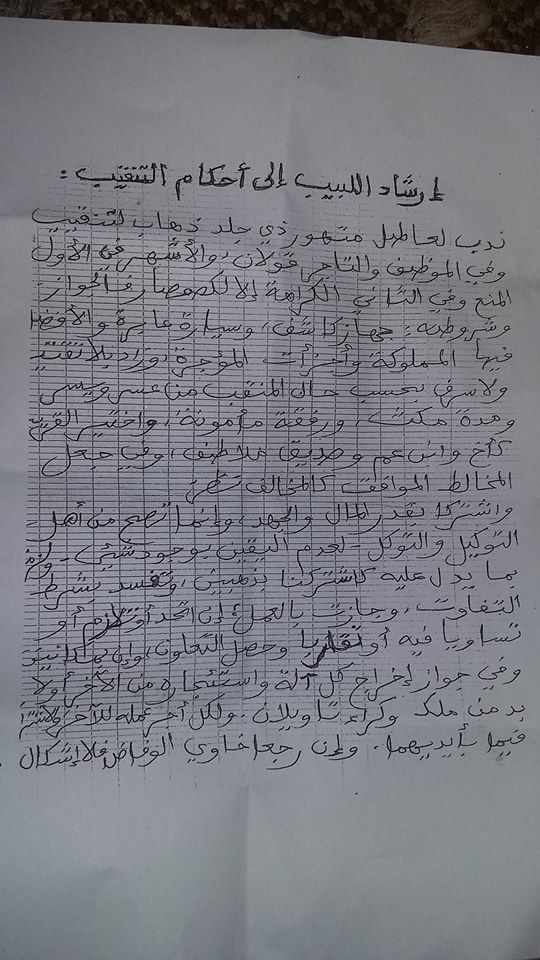 إرشاد اللبيب إلى أحكام التنقيب :
ندب لعاطل متهور ذي جلد ذهاب لتنقيب
وفي الموظف والتاجر قولان، والأشهر في الأول
المنع وفي الثاني الكراهة إلا لكصوصارف الجواز.
وشروطه : جهاز كاشف، وسيارة عابرة والأفضل
فيها المملوكة وأجزأت المؤجرة، وزاد بلا تقتير
ولا سرف بحسب حال المنقب من عسر ويسر
ومدة مكث، ورفقة مأمونة، واختير القريب
كأخ وابن عم وصديق ملاطف، وفي جعل
المخالط الموافق كالمخالف نظر
واشتركا بقدر المال والجهد، وإنما تصح من أهل
التوكيل والتوكل - لعدم اليقين بوجود شيئ - ولزم
بما يدل عليه كاشتركنا بذهبين، وتفسد بشرط
التفاوت، وجازت بالعمل إن اتحد أو تلازم أو
تساويا فيه أو تقاربا وحصل التعاون، وإن بمكانين
وفي جواز إخراج كل آلة واستئجاره من الآخر أولا
بد من ملك وكراء تاويلان. ولكل أجر عمله للآخر
فيما بأيديهما. وإن رجعا خاوي الوفاض فلا إشكال.